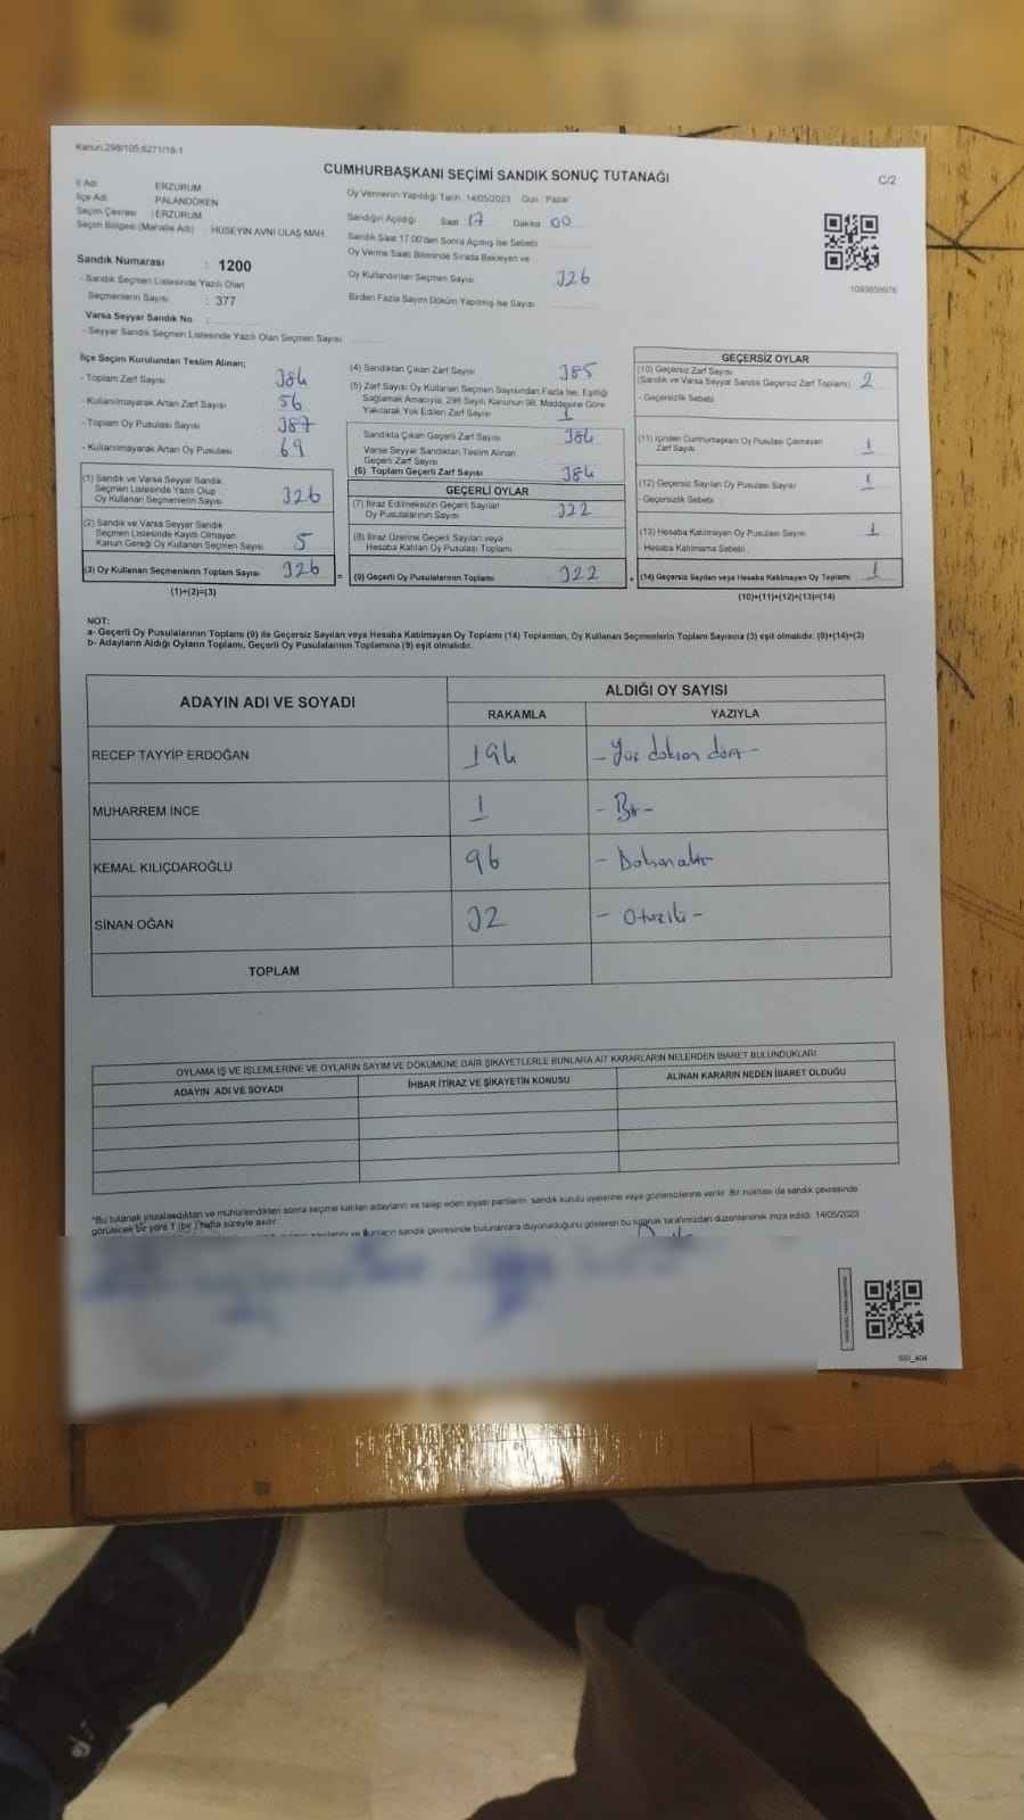 Kanun:298/105;6271/18-1
CUMHURBAŞKANI SEÇİMİ SANDIK SONUÇ TUTANAĞI
C/2
İl Adı ERZURUM
İlçe Adı PALANDÖKEN
Seçim Çevresi : ERZURUM
Seçim Bölgesi (Mahalle Adı) : HÜSEYİN AVNİ ULAŞ MAH.
Oy Vermenin Yapıldığı Tarih 14/05/2023 Gün Pazar
Sandığın Açıldığı Saat 17 Dakika 00
Sandık Saat 17.00'den Sonra Açılmış İse Sebebi
Oy Verme Saati Bitiminde Sırada Bekleyen ve
Oy Kullandırılan Seçmen Sayısı 326
Birden Fazla Sayım Döküm Yapılmış İse Sayısı
Sandık Numarası : 1200
- Sandık Seçmen Listesinde Yazılı Olan
Seçmenlerin Sayısı : 377
Varsa Seyyar Sandık No
- Seyyar Sandık Seçmen Listesinde Yazılı Olan Seçmen Sayısı
İlçe Seçim Kurulundan Teslim Alınan;
- Toplam Zarf Sayısı 384
- Kullanılmayarak Artan Zarf Sayısı 56
- Toplam Oy Pusulası Sayısı 387
- Kullanılmayarak Artan Oy Pusulası 69
(1) Sandık ve Varsa Seyyar Sandık
Seçmen Listesinde Yazılı Olup
Oy Kullanan Seçmenlerin Sayısı 326
(2) Sandık ve Varsa Seyyar Sandık
Seçmen Listesinde Kayıtlı Olmayan
Kanun Gereği Oy Kullanan Seçmen Sayısı 5
(3) Oy Kullanan Seçmenlerin Toplam Sayısı 326
(1)+(2)=(3)
(4) Sandıktan Çıkan Zarf Sayısı 385
(5) Zarf Sayısı Oy Kullanan Seçmen Sayısından Fazla İse, Eşitliği
Sağlamak Amacıyla, 298 Sayılı Kanunun 98. Maddesine Göre
Yakılarak Yok Edilen Zarf Sayısı 1
Sandıkta Çıkan Geçerli Zarf Sayısı 384
Varsa Seyyar Sandıktan Teslim Alınan
Geçerli Zarf Sayısı
(6) Toplam Geçerli Zarf Sayısı 384
GEÇERLİ OYLAR
(7) İtiraz Edilmeksizin Geçerli Sayılan
Oy Pusulalarının Sayısı 322
(8) İtiraz Üzerine Geçerli Sayılan veya
Hesaba Katılan Oy Pusulası Toplamı
= (9) Geçerli Oy Pusulalarının Toplamı 322
GEÇERSİZ OYLAR
(10) Geçersiz Zarf Sayısı
(Sandık ve Varsa Seyyar Sandık Geçersiz Zarf Toplamı) 2
- Geçersizlik Sebebi
(11) İçinden Cumhurbaşkanı Oy Pusulası Çıkmayan
Zarf Sayısı 1
(12) Geçersiz Sayılan Oy Pusulası Sayısı 1
- Geçersizlik Sebebi
(13) Hesaba Katılmayan Oy Pusulası Sayısı 1
Hesaba Katılmama Sebebi
+ (14) Geçersiz Sayılan veya Hesaba Katılmayan Oy Toplamı 1
(10)+(11)+(12)+(13)=(14)
NOT:
a- Geçerli Oy Pusulalarının Toplamı (9) ile Geçersiz Sayılan veya Hesaba Katılmayan Oy Toplamı (14) Toplamları, Oy Kullanan Seçmenlerin Toplam Sayısına (3) eşit olmalıdır. (9)+(14)=(3)
b- Adayların Aldığı Oyların Toplamı, Geçerli Oy Pusulalarının Toplamına (9) eşit olmalıdır.
ADAYIN ADI VE SOYADI
ALDIĞI OY SAYISI
RAKAMLA YAZIYLA
RECEP TAYYİP ERDOĞAN 194 - Yüz doksan dört -
MUHARREM İNCE 1 - Bir -
KEMAL KILIÇDAROĞLU 96 - Doksanaltı
SİNAN OĞAN 32 - Otuziki -
TOPLAM
OYLAMA İŞ VE İŞLEMLERİNE VE OYLARIN SAYIM VE DÖKÜMÜNE DAİR ŞİKAYETLERLE BUNLARA AİT KARARLARIN NELERDEN İBARET BULUNDUKLARI
ADAYIN ADI VE SOYADI İHBAR İTİRAZ VE ŞİKAYETİN KONUSU ALINAN KARARIN NEDEN İBARET OLDUĞU
*Bu tutanak imzalandıktan ve mühürlendikten sonra seçime katılan adayların ve talep eden siyasi partilerin sandık kurulu üyelerine veya gözlemcilerine verilir. Bir nüshası da sandık çevresinde
görülecek bir yere 1 (bir) hafta süreyle asılır.
sandık çevresinde bulunanlara duyurulduğunu gösteren bu tutanak tarafımızdan düzenlenerek imza edildi. 14/05/2023